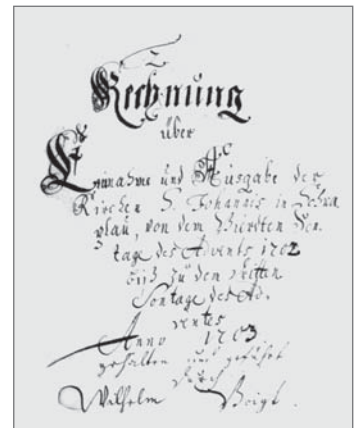 Rechnung
über
Einnahme und Ausgabe der
Kirchen S. Johannis in Schra
plau, von dem Vierdten Son
tage des Advents 1702
biß zu dem dritten
Sontage des Ad-
ventes
Anno 1703
gehalten und geführt
durch
Wilhelm Voigt.